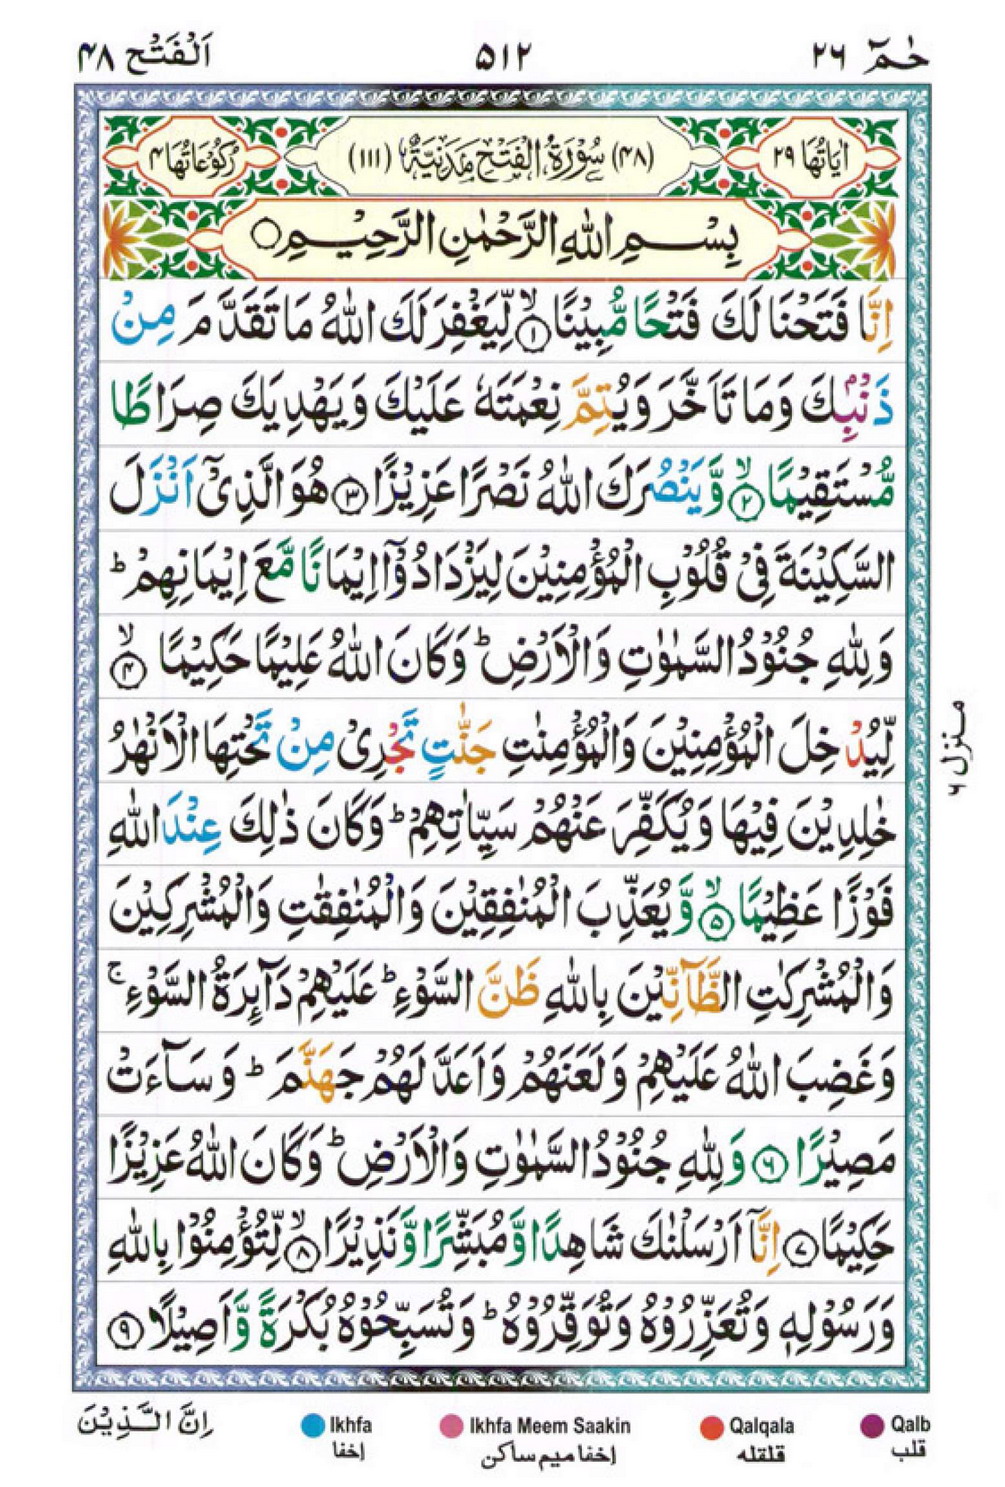 حٰمٓ ۲۶ ۵۱۲ اَلْفَتْح ۴۸
اٰيَاتُهَا ۲۹ (۴۸) سُوْرَةُ الْفَتْحِ مَدَنِيَّةٌ (۱۱۱) رُكُوْعَاتُهَا ۴
بِسْمِ اللّٰهِ الرَّحْمٰنِ الرَّحِيْمِ ○
اِنَّا فَتَحْنَا لَكَ فَتْحًا مُّبِيْنًا ۙ۝۱ لِّيَغْفِرَ لَكَ اللّٰهُ مَا تَقَدَّمَ مِنْ
ذَنْۢبِكَ وَمَا تَاَخَّرَ وَيُتِمَّ نِعْمَتَهٗ عَلَيْكَ وَيَهْدِيَكَ صِرَاطًا
مُّسْتَقِيْمًا ۙ۝۲ وَّيَنْصُرَكَ اللّٰهُ نَصْرًا عَزِيْزًا ۝۳ هُوَ الَّذِيْٓ اَنْزَلَ
السَّكِيْنَةَ فِيْ قُلُوْبِ الْمُؤْمِنِيْنَ لِيَزْدَادُوْٓا اِيْمَانًا مَّعَ اِيْمَانِهِمْ ؕ
وَلِلّٰهِ جُنُوْدُ السَّمٰوٰتِ وَالْاَرْضِ ؕ وَكَانَ اللّٰهُ عَلِيْمًا حَكِيْمًا ۙ۝۴
لِّيُدْخِلَ الْمُؤْمِنِيْنَ وَالْمُؤْمِنٰتِ جَنّٰتٍ تَجْرِيْ مِنْ تَحْتِهَا الْاَنْهٰرُ
خٰلِدِيْنَ فِيْهَا وَيُكَفِّرَ عَنْهُمْ سَيِّاٰتِهِمْ ؕ وَكَانَ ذٰلِكَ عِنْدَ اللّٰهِ
فَوْزًا عَظِيْمًا ۙ۝۵ وَّيُعَذِّبَ الْمُنٰفِقِيْنَ وَالْمُنٰفِقٰتِ وَالْمُشْرِكِيْنَ
وَالْمُشْرِكٰتِ الظَّآنِّيْنَ بِاللّٰهِ ظَنَّ السَّوْءِ ؕ عَلَيْهِمْ دَآئِرَةُ السَّوْءِ ۚ
وَغَضِبَ اللّٰهُ عَلَيْهِمْ وَلَعَنَهُمْ وَاَعَدَّ لَهُمْ جَهَنَّمَ ؕ وَسَآءَتْ
مَصِيْرًا ۝۶ وَلِلّٰهِ جُنُوْدُ السَّمٰوٰتِ وَالْاَرْضِ ؕ وَكَانَ اللّٰهُ عَزِيْزًا
حَكِيْمًا ۝۷ اِنَّآ اَرْسَلْنٰكَ شَاهِدًا وَّمُبَشِّرًا وَّنَذِيْرًا ۙ۝۸ لِّتُؤْمِنُوْا بِاللّٰهِ
وَرَسُوْلِهٖ وَتُعَزِّرُوْهُ وَتُوَقِّرُوْهُ ؕ وَتُسَبِّحُوْهُ بُكْرَةً وَّاَصِيْلًا ۝۹
منزل ۶
اِنَّ الَّذِيْنَ
Ikhfa Ikhfa Meem Saakin Qalqala Qalb
إخفا إخفا ميم ساكن قلقله قلب